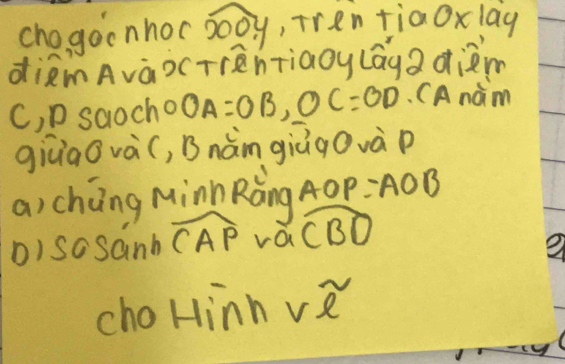 cho góc nhọc xOy, Trên tia Ox lấy
điểm A và x Trên Tia Oy Lấy 2 điểm
C, D sao cho OA=OB, OC=OD. (A nằm
giữa O và C, B nằm giữa O và D
a) chứng Minh Rằng AOP=AOB
b) so sánh CAP và CBD
cho Hình vẽ